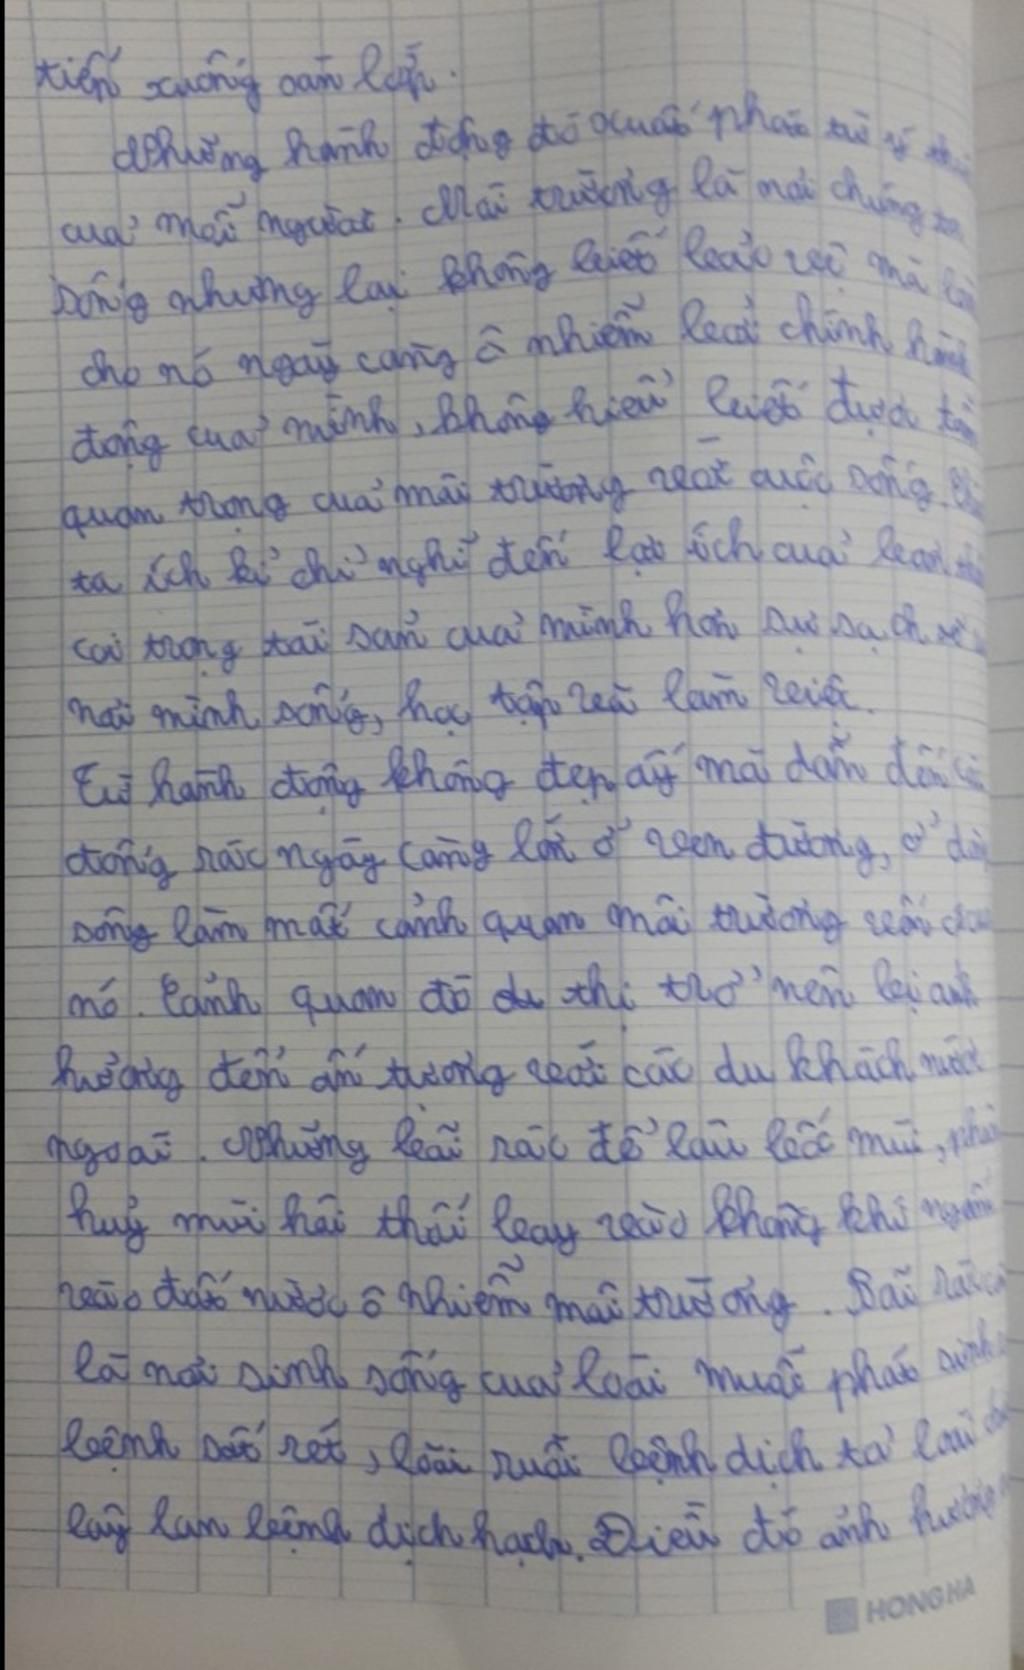 tiến xuống oan lớp.
Những hành động đó xuất phát từ ý
của mỗi người. Môi trường là nơi chúng ta
sống nhưng lại không biết bảo vệ mà làm
cho nó ngày càng ô nhiễm bởi chính hành
động của mình, không hiểu biết được tầm
quan trọng của môi trường với cuộc sống.
ta ích kỉ chỉ nghĩ đến lợi ích của bản
coi trọng tài sản của mình hơn sự sạch sẽ
nơi mình sống, học tập và làm việc.
Từ hành động không đẹp ấy mà dẫn đến
đống rác ngày càng lớn ở ven đường, ở
sông làm mất cảnh quan môi trường vốn
nó. Cảnh quan đô du thị trở nên bị ảnh
hưởng đến ấn tượng với các du khách nước
ngoài. Những bãi rác để lâu bốc mùi, phân
huỷ mùi hôi thối bay vào không khí ngấm
vào đất nước ô nhiễm môi trường. Bãi rác
là nơi sinh sống của loài muỗi phát sinh
bệnh sốt rét, loài ruồi bệnh dịch tả
lây lan bệnh dịch hạch. Điều đó ảnh hưởng
HONG HA